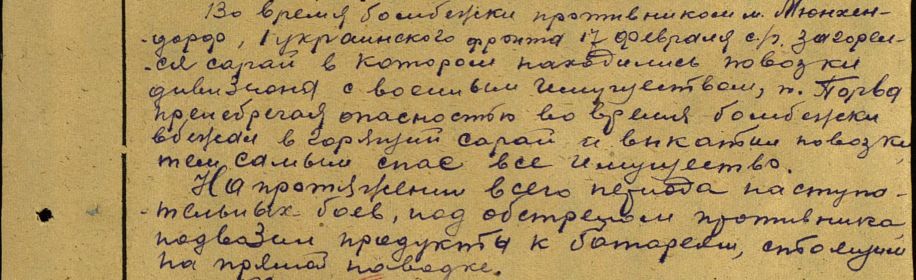 Во время бомбежки противником м. Мюнхен-
-дорф, 1 украинского фронта 17 февраля с/г. загорел-
-ся сарай в котором находились повозки
дивизиона с военным имуществом, т. Торва
пренебрегая опасностью во время бомбежки
вбежал в горящий сарай и выкатил повозки
тем самым спас все имущество.
На протяжении всего периода наступа-
-тельных боев, под обстрелом противника
подвозил продукты к батареям, стоящим
на прямой наводке.